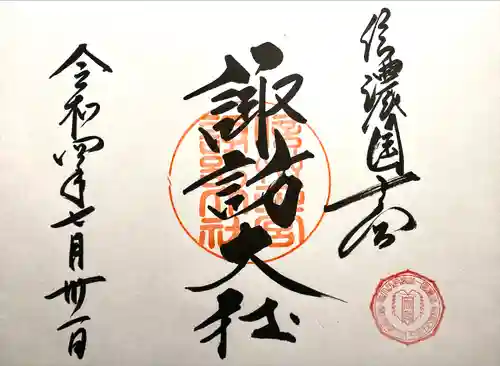 信濃國一宮
諏訪大社
令和四年七月卅一日